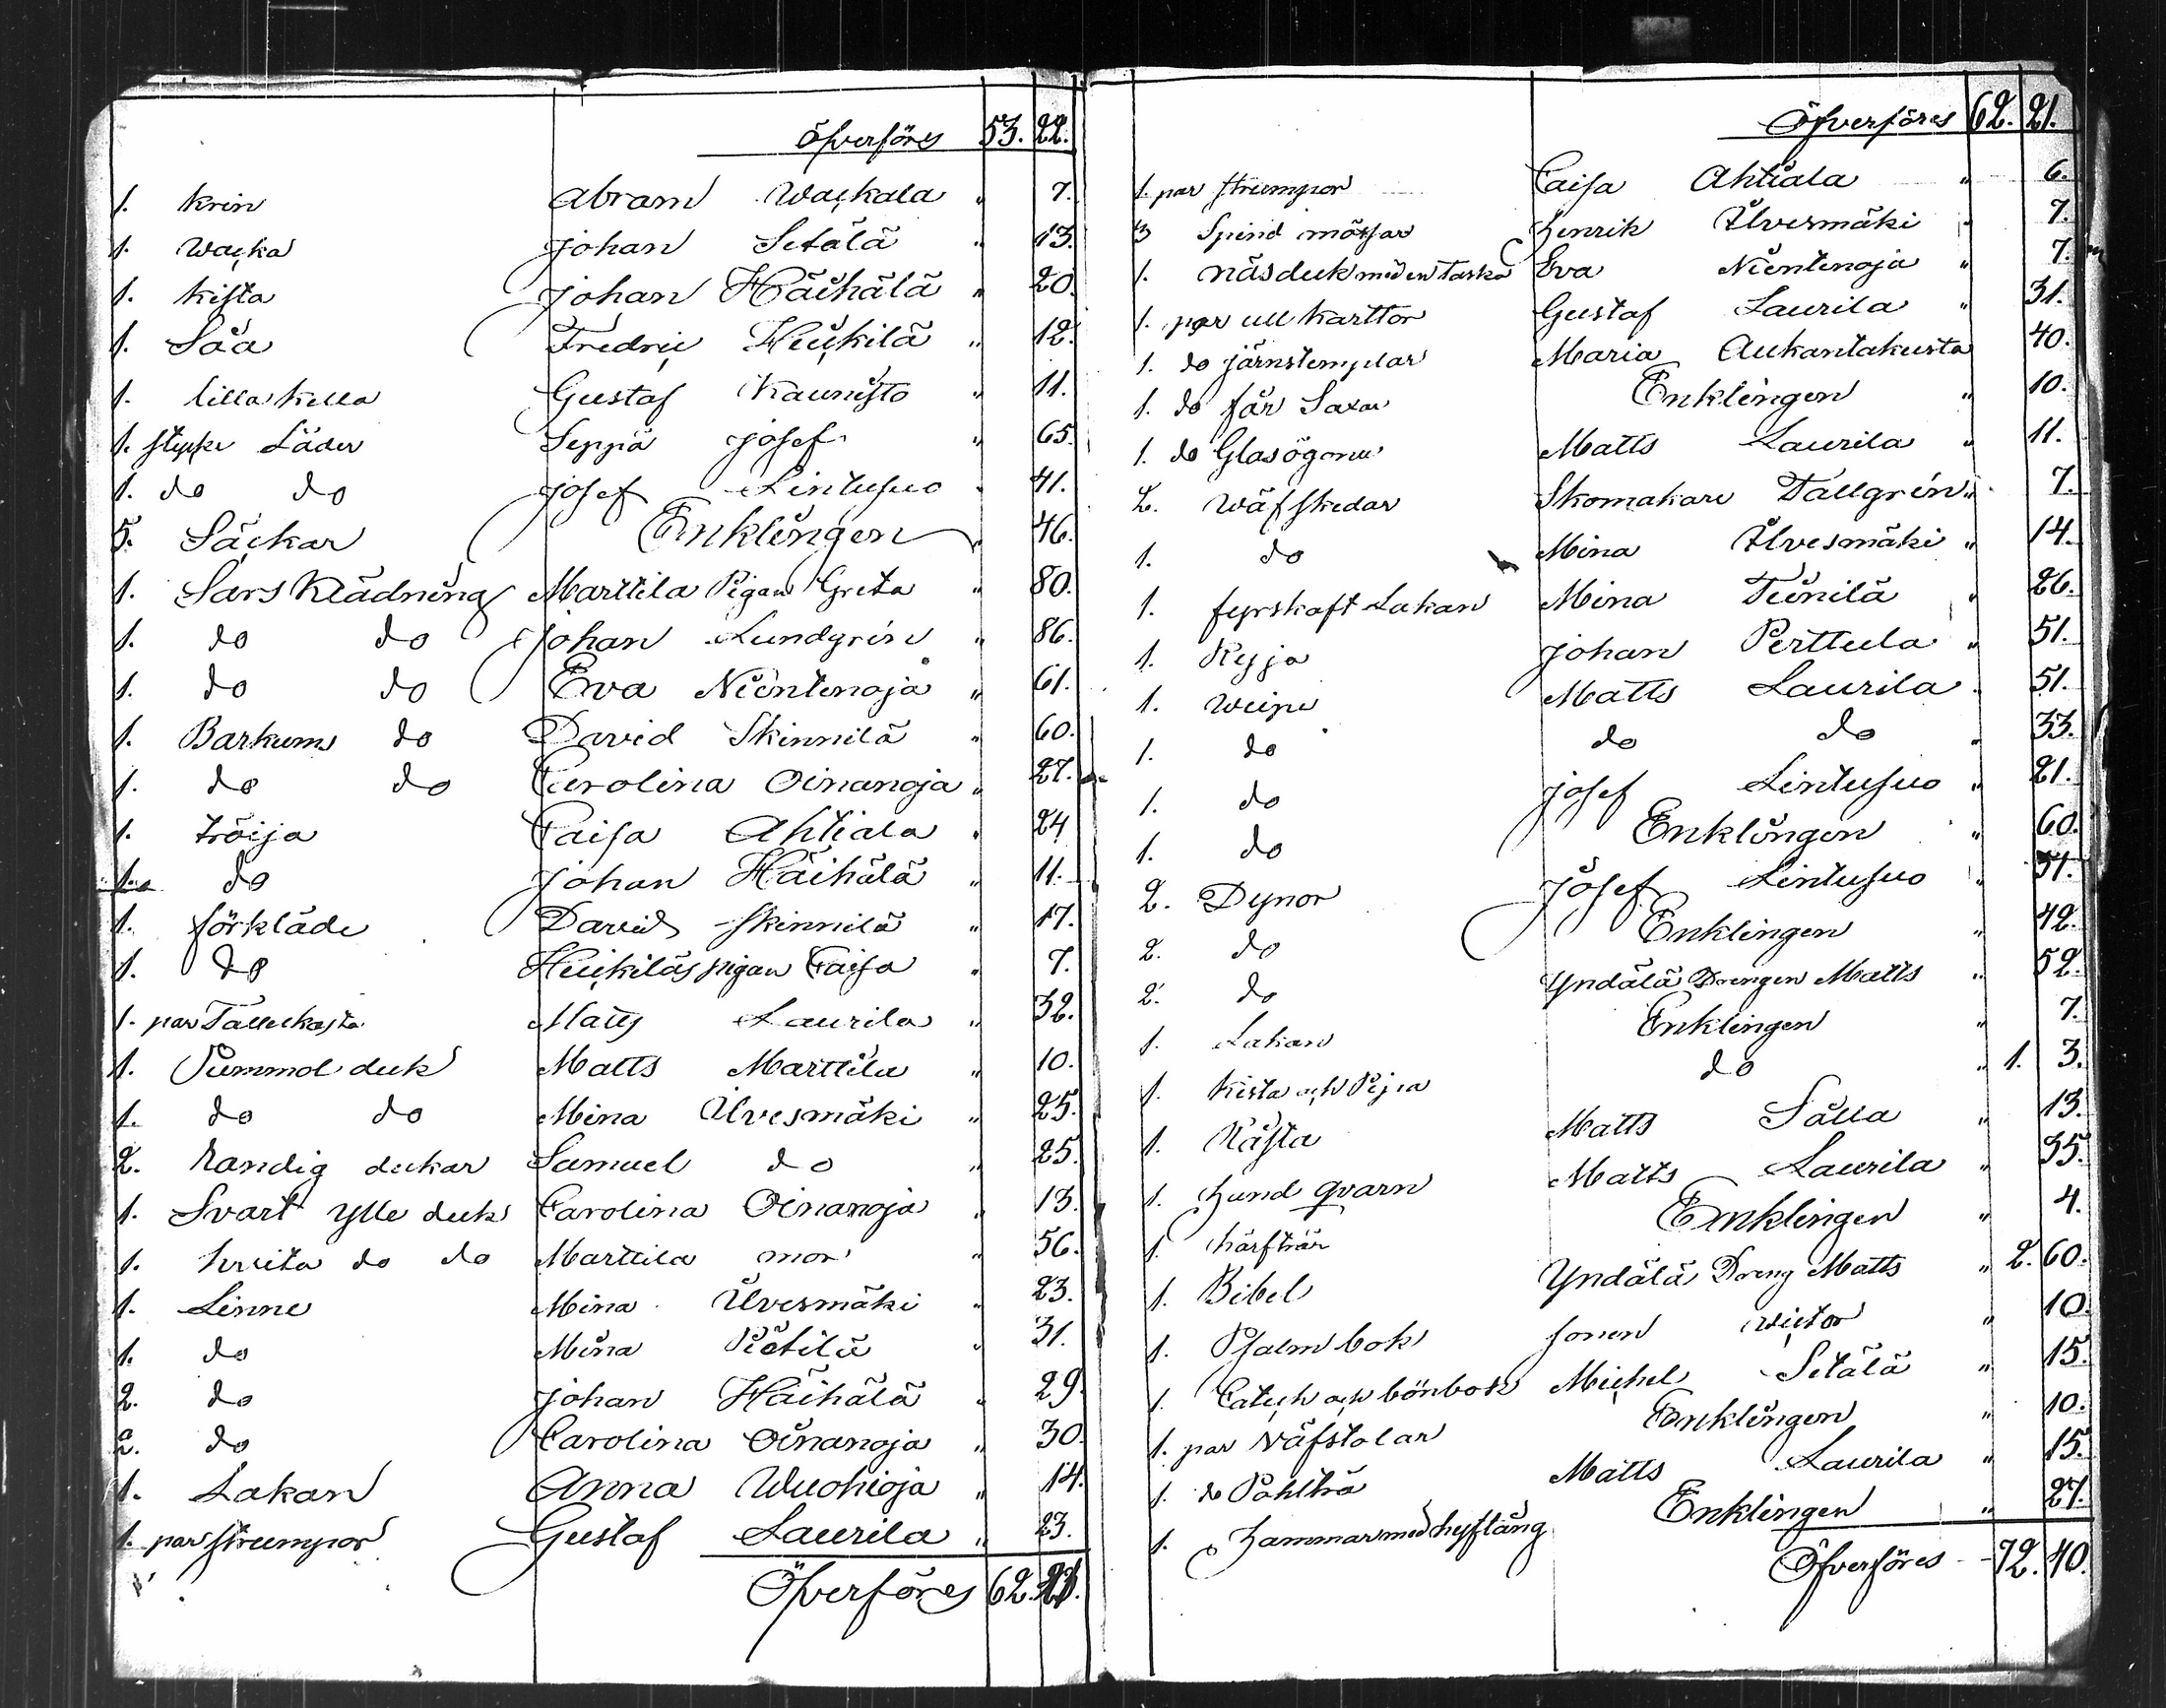 Öfverföres 53. 22.
1. Krin Abram Wackala " 7.
1. Wacka Johan Setälä " 13.
1. Kista Johan Häihälä " 20.
1. Såa Fredric Heickilä " 12.
1. lilla Killa Gustaf Kaunisto " 11.
1. stycke Läder Seppä Josef " 65.
1. do do Josef Lintusuo " 41.
5. Säckar Enklingen " 46.
1. Sars Klädning Marttila Pigan Greta " 80.
1. do do Johan Lundgrén " 86.
1. do do Eva Nientenoja " 61.
1. Barkums do David Skinnilä " 60.
1. do do Carolina Oinanoja " 27.
1. tröija Caisa Ahtiala " 24
1. do Johan Häihälä " 11.
1. förkläde David Skinnilä " 17.
1. do Heickiläs pigan Caisa " 7.
1. par Matts Laurila " 32.
1. Pummol duk Matts Marttila " 10.
1. do do Mina Ilvesmäki " 25.
2. Randig dukar Samuel do " 25.
1. Svart ylle duk Carolina Oinanoja " 13.
1. hvita do do Marttila mor " 56.
1. Linne Mina Ilvesmäki " 23.
1. do Mina Pietilä " 31.
2. do Johan Häihälä " 29.
2. do Carolina Oinanoja " 30.
1. Lakan Anna Wuohioja " 14.
1. par strumpor Gustaf Laurila " 23.
Öfverföres 62. 21.
Öfverföres 62. 21.
1. par strumpor Caisa Ahtiala " 6.
3 Spind mössar Henrik Ilvesmäki " 7.
1. näsduk med en taska Eva Nientenoja " 7.
1. par ull Karttor Gustaf Laurila " 31.
1. do järnstemplar Maria Aukantakusta 40.
1. do får Saxar Enklingen " 10.
1. do Glasögonen Matts Laurila " 11.
2. Wäfskedar Skomakare Tallgrén " 7.
1. do Mina Ilvesmäki " 14.
1. fyrskaft Lakan Mina Tienilä " 26.
1. Ryja Johan Perttula " 51.
1. Weipe Matts Laurila " 51.
1. do do do " 33.
1. do Josef Lintusuo " 21.
1. do Enklingen " 60.
2. Dynor Josef Lintusuo " 51.
2. do Enklingen " 42.
2. do Yndälä Drengen Matts " 52.
1. Lakan Enklingen " 7.
1. Kista och do " 1. 3.
1. Matts Sälla " 13.
1. Hand qvarn Matts Laurila " 35.
1. härfträr Enklingen " 4.
1. Bibel Yndälä Dreng Matts " 2. 60.
1. Psalm bok sonen Wictor " 10.
1. Catech och bönbok Michel Setälä " 15.
1. par Wäfstolar Enklingen " 10.
1. do Matts Laurila " 15.
1. Hammar med hoftång Enklingen " 27.
Öfverföres 72. 40.